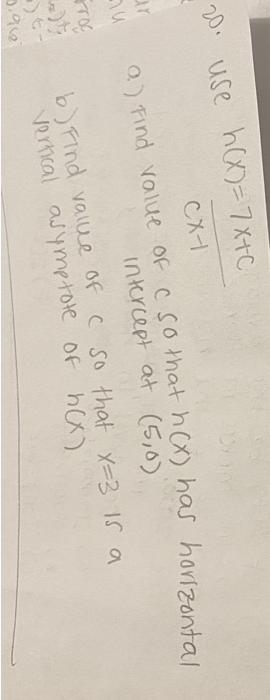 20. use h(x)=7x+c
cx-1
a.) Find value of c so that h(x) has horizontal
intercept at (5,0)
b.) Find value of c so that x=3 is a
vertical asymptote of h(x)